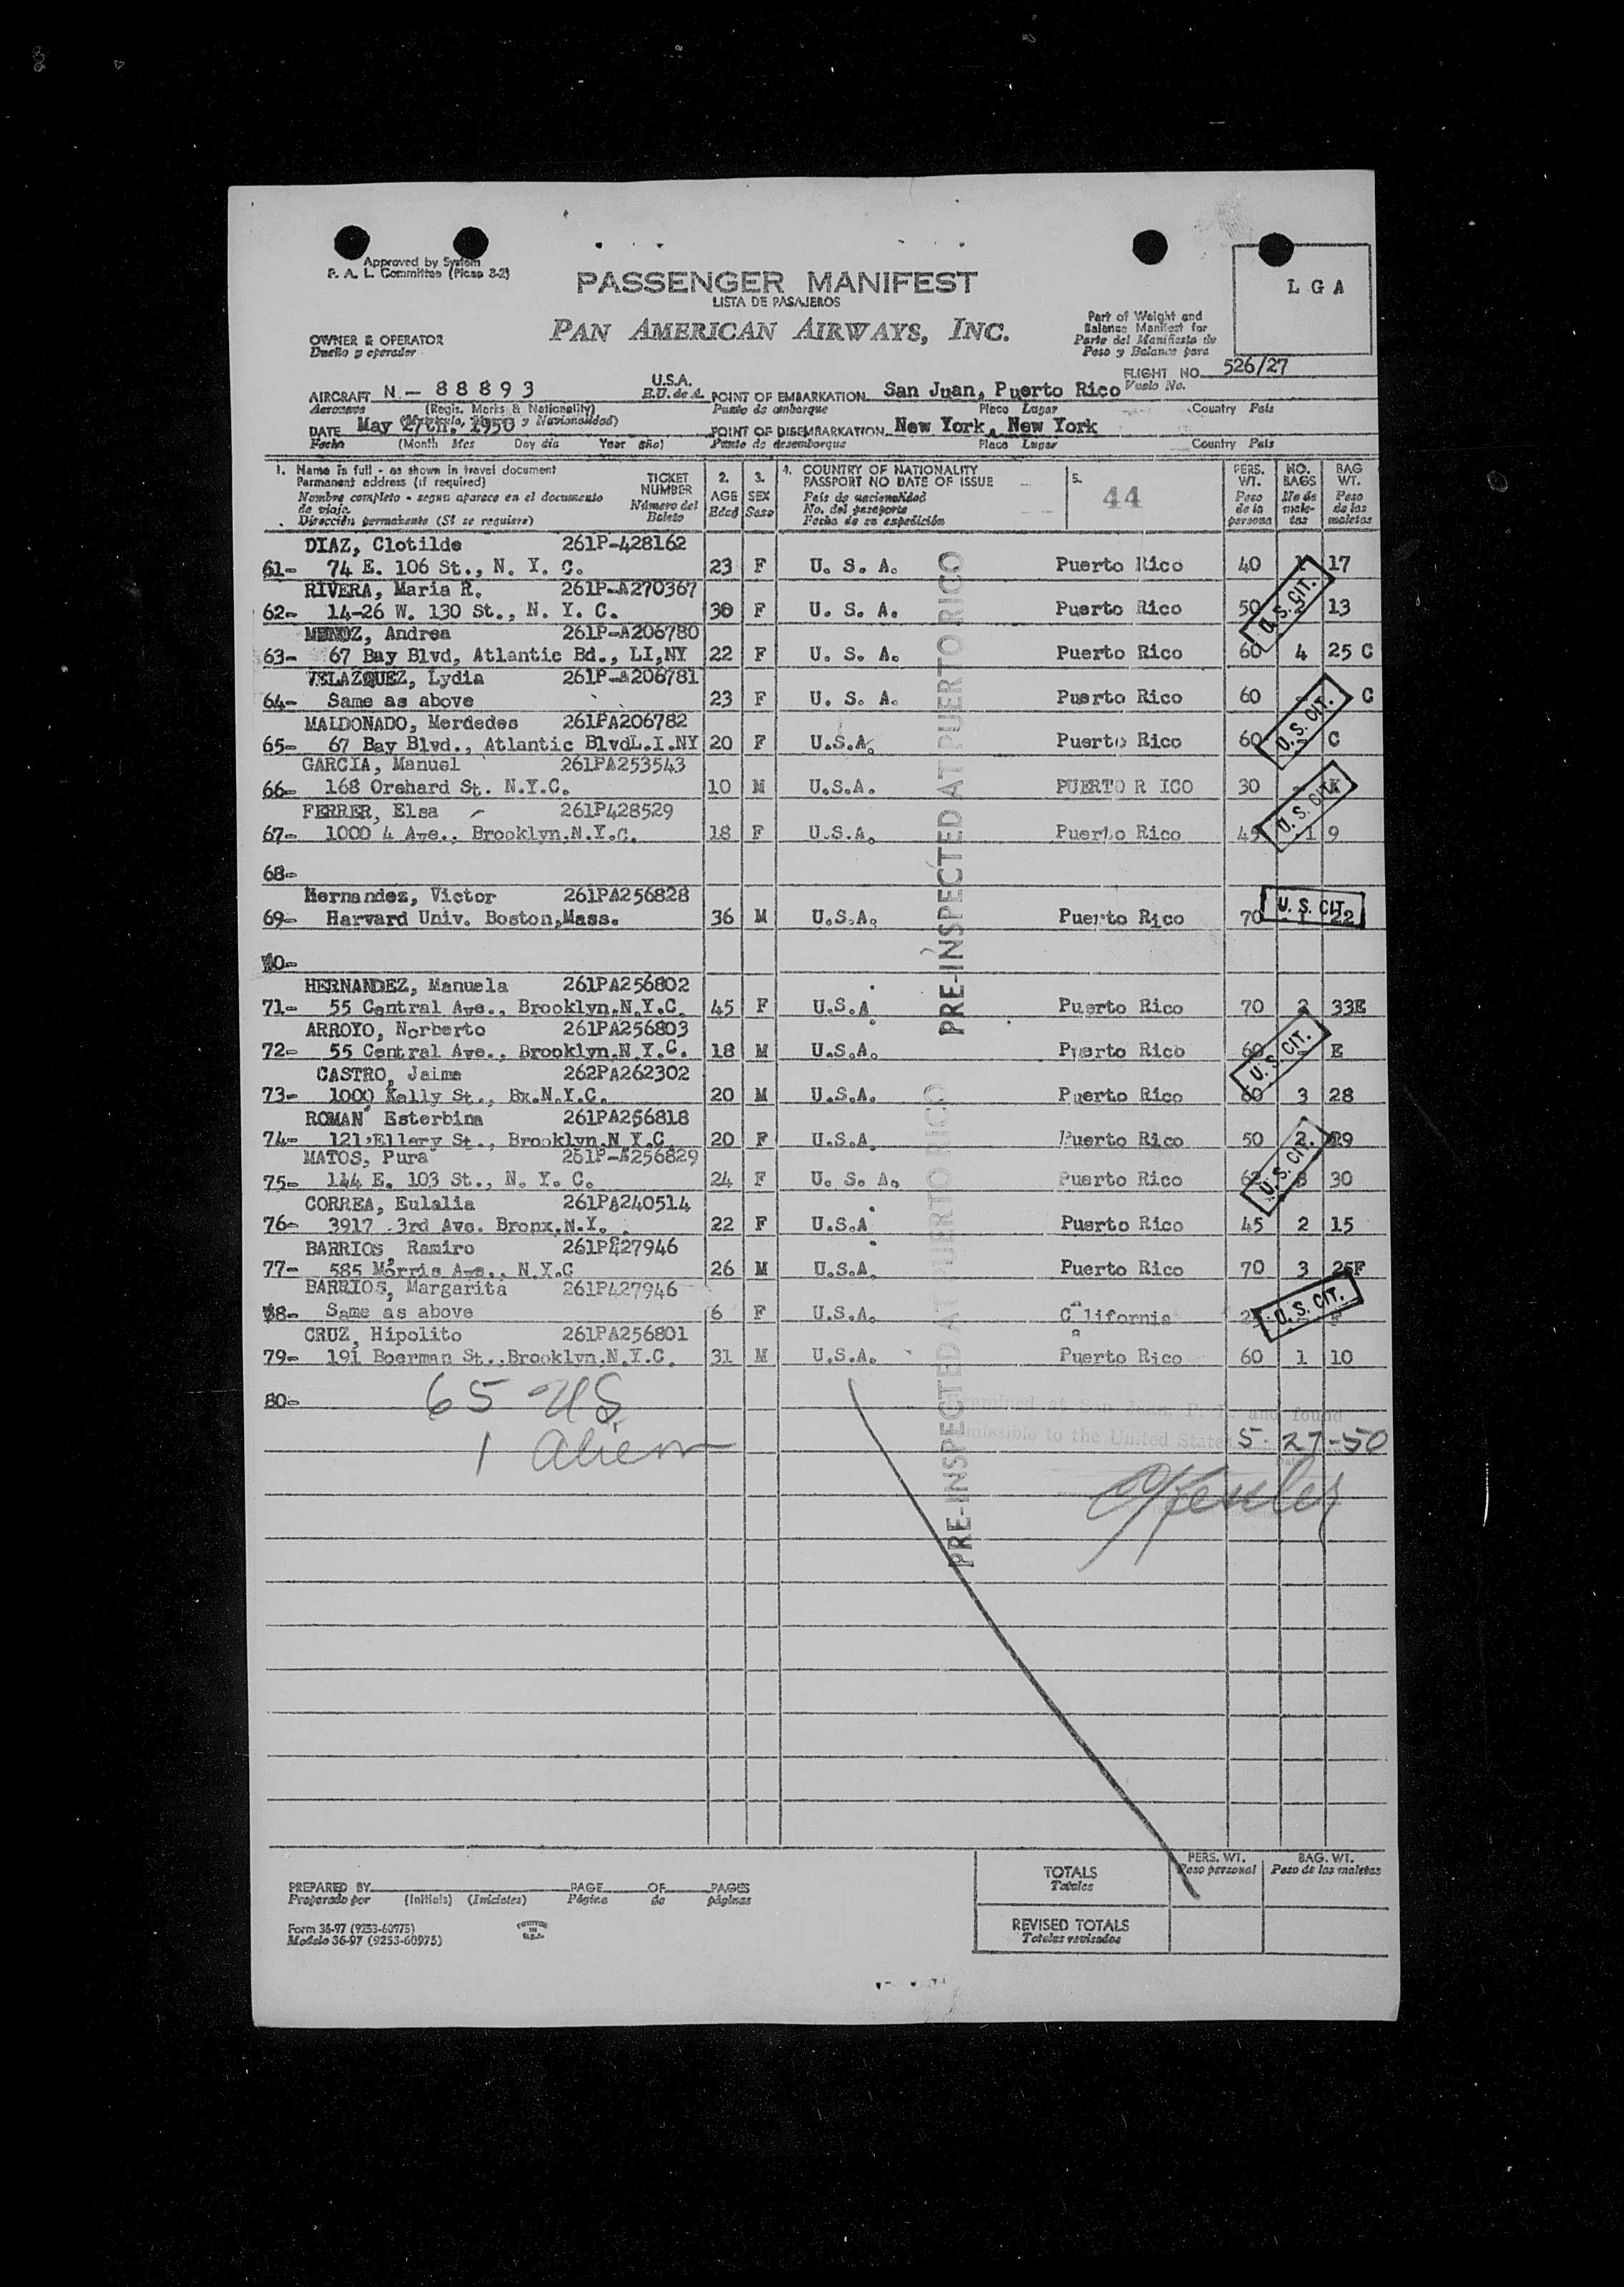 Approved by System
P. A. L. Committee (Picao 3-2)
PASSENGER MANIFEST
LISTA DE PASAJEROS
PAN AMERICAN AIRWAYS, INC.
L G A
Part of Weight and
Balance Manifest for
Parte del Manifiesto de
Peso y Balance para
OWNER & OPERATOR
Dueño y operador
FLIGHT NO. 526/27
Vuelo No.
AIRCRAFT N - 88893 U.S.A. POINT OF EMBARKATION San Juan, Puerto Rico
Aeronave (Regis. Marks & Nationality) E.U. de A. Punto de embarque Place Lugar Country País
(Matrícula, Marca y Nacionalidad)
DATE May 27th, 1950 POINT OF DISEMBARKATION New York, New York
Fecha (Month Mes Day día Year año) Punto de desembarque Place Lugar Country País
1. Name in full - as shown in travel document
Permanent address (if required)
Nombre completo - segun aparece en el documento
de viaje.
Dirección permanente (Si se requiere)
TICKET
NUMBER
Número del
Boleto
2.
AGE
Edad
3.
SEX
Sexo
4. COUNTRY OF NATIONALITY
PASSPORT NO DATE OF ISSUE
País de nacionalidad
No. del pasaporte
Fecha de su expedición
5.
44
PERS.
WT.
Peso
de la
persona
NO.
BAGS
No de
male-
tas
BAG
WT.
Peso
de las
maletas
DIAZ, Clotilde 261P-428162
61- 74 E. 106 St., N. Y. C. 23 F U. S. A. Puerto Rico 40 1 17
RIVERA, Maria R. 261P-A270367
62- 14-26 W. 130 St., N. Y. C. 30 F U. S. A. Puerto Rico 50 13
Andrea 261P-A206780
63- 67 Bay Blvd, Atlantic Bd., LI,NY 22 F U. S. A. Puerto Rico 60 4 25 C
VELAZQUEZ, Lydia 261P-A206781
64- Same as above 23 F U. S. A. Puerto Rico 60 - C
MALDONADO, Merdedes 261PA206782
65- 67 Bay Blvd., Atlantic BlvdL.I.NY 20 F U.S.A. Puerto Rico 60 C
GARCIA, Manuel 261PA253543
66- 168 Orchard St. N.Y.C. 10 M U.S.A. PUERTO R ICO 30 - K
FERRER, Elsa 261P428529
67- 1000 4 Ave., Brooklyn,N.Y.C. 18 F U.S.A. Puerto Rico 45 1 9
68-
Hernandez, Victor 261PA256828
69- Harvard Univ. Boston,Mass. 36 M U.S.A. Puerto Rico 70 1 22
70-
HERNANDEZ, Manuela 261PA256802
71- 55 Central Ave., Brooklyn.N.Y.C. 45 F U.S.A. Puerto Rico 70 2 33E
ARROYO, Norberto 261PA256803
72- 55 Central Ave., Brooklyn.N.Y.C. 18 M U.S.A. Puerto Rico 60 E
CASTRO, Jaime 262PA262302
73- 1000 Kelly St., Bx.N.Y.C. 20 M U.S.A. Puerto Rico 60 3 28
ROMAN Esterbina 261PA256818
74- 121 Ellery St., Brooklyn.N.Y.C. 20 F U.S.A. Puerto Rico 50 2 29
MATOS, Pura 261P-A256829
75- 144 E. 103 St., N. Y. C. 24 F U. S. A. Puerto Rico 62 3 30
CORREA, Eulalia 261PA240514
76- 3917 3rd Ave. Bronx,N.Y. 22 F U.S.A. Puerto Rico 45 2 15
BARRIOS, Ramiro 261P427946
77- 585 Morris Ave., N.Y.C 26 M U.S.A. Puerto Rico 70 3 26F
BARRIOS, Margarita 261P427946
78- Same as above 6 F U.S.A. California F
CRUZ, Hipolito 261PA256801
79- 191 Boerman St.,Brooklyn.N.Y.C. 31 M U.S.A. Puerto Rico 60 1 10
80-
65 US
1 Alien
PRE-INSPECTED AT PUERTO RICO
PRE-INSPECTED AT PUERTO RICO
U. S. CIT.
U. S. CIT.
U. S. CIT.
U. S. CIT.
U. S. CIT.
U. S. CIT.
U. S. CIT.
Examined at San Juan, P. R. and found
admissible to the United States 5-27-50
TOTALS
Totales
PERS. WT.
Peso personal
BAG. WT.
Peso de las maletas
REVISED TOTALS
Totales revisados
PREPARED BY PAGE OF PAGES
Preparado por (Initials) (Iniciales) Página de páginas
Form 36-97 (9253-60975)
Modelo 36-97 (9253-60975)
PRINTED
IN
U.S.A.